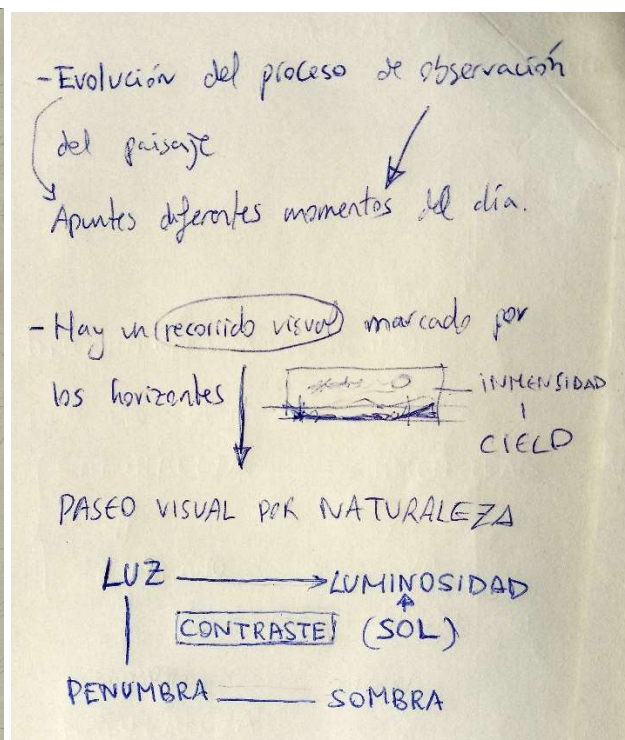 - Evolución del proceso de observación
del paisaje
Apuntes diferentes momentos del día.
- Hay un recorrido visual marcado por
los horizontes
INMENSIDAD
CIELO
PASEO VISUAL POR NATURALEZA
LUZ LUMINOSIDAD
CONTRASTE (SOL)
PENUMBRA SOMBRA